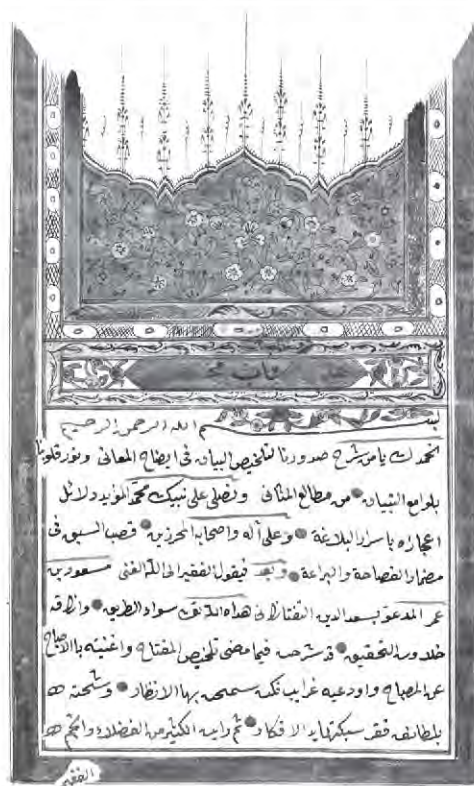 كتاب مختصر
بسم الله الرحمن الرحيم
نحمدك يا من شرح صدورنا لتلخيص البيان فى ايضاح المعانى ونور قلوبنا
بلوامع التبيان من مطالع المثانى ونصلى على نبيك محمد المؤيد دلائل
اعجازه باسرار البلاغة وعلى آله واصحابه المحرزين قصب السبق فى
مضمار الفصاحة والبراعة وبعد فيقول الفقير الى الله الغنى مسعود بن
عمر المدعو بسعد الدين التفتازانى هداه الله سواء الطريق واذاقه
حلاوة التحقيق قد شرحت فيما مضى تلخيص المفتاح واغنيته بالاصباح
عن المصباح واودعته غرايب نكت سمحت بها الانظار ووشحته
بلطائف فقر سبكتها يد الافكار ثم رايت الكثير من الفضلاء والجم
الغفير